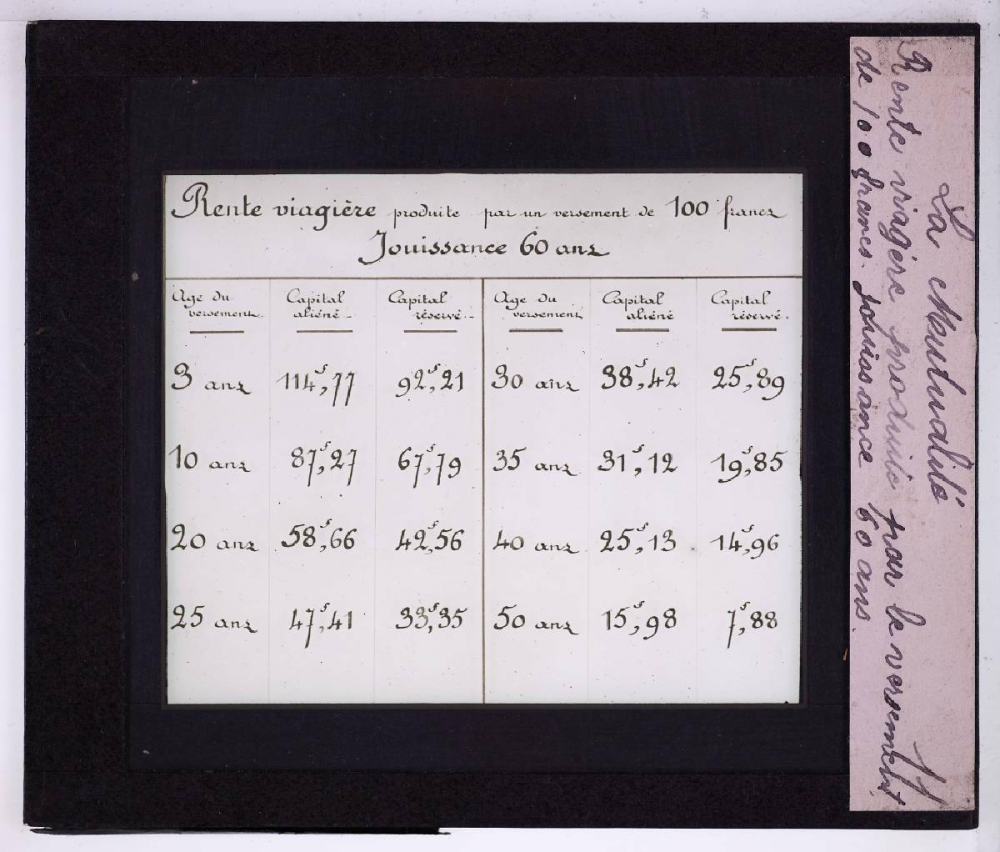 Rente viagière produite par un versement de 100 francs
Jouissance 60 ans
Age du versement. Capital aliéné Capital réservé. Age du versement Capital aliéné Capital réservé.
3 ans 114f,77 92f,21 30 ans 38f,42 25f,89
10 ans 87f,27 67f,79 35 ans 31f,12 19f,85
20 ans 58f,66 42f,56 40 ans 25f,13 14f,96
25 ans 47f,41 33f,35 50 ans 15f,98 7f,88
La Mutualité 11
Rente viagère produite par le versement
de 100 francs. Jouissance 60 ans.